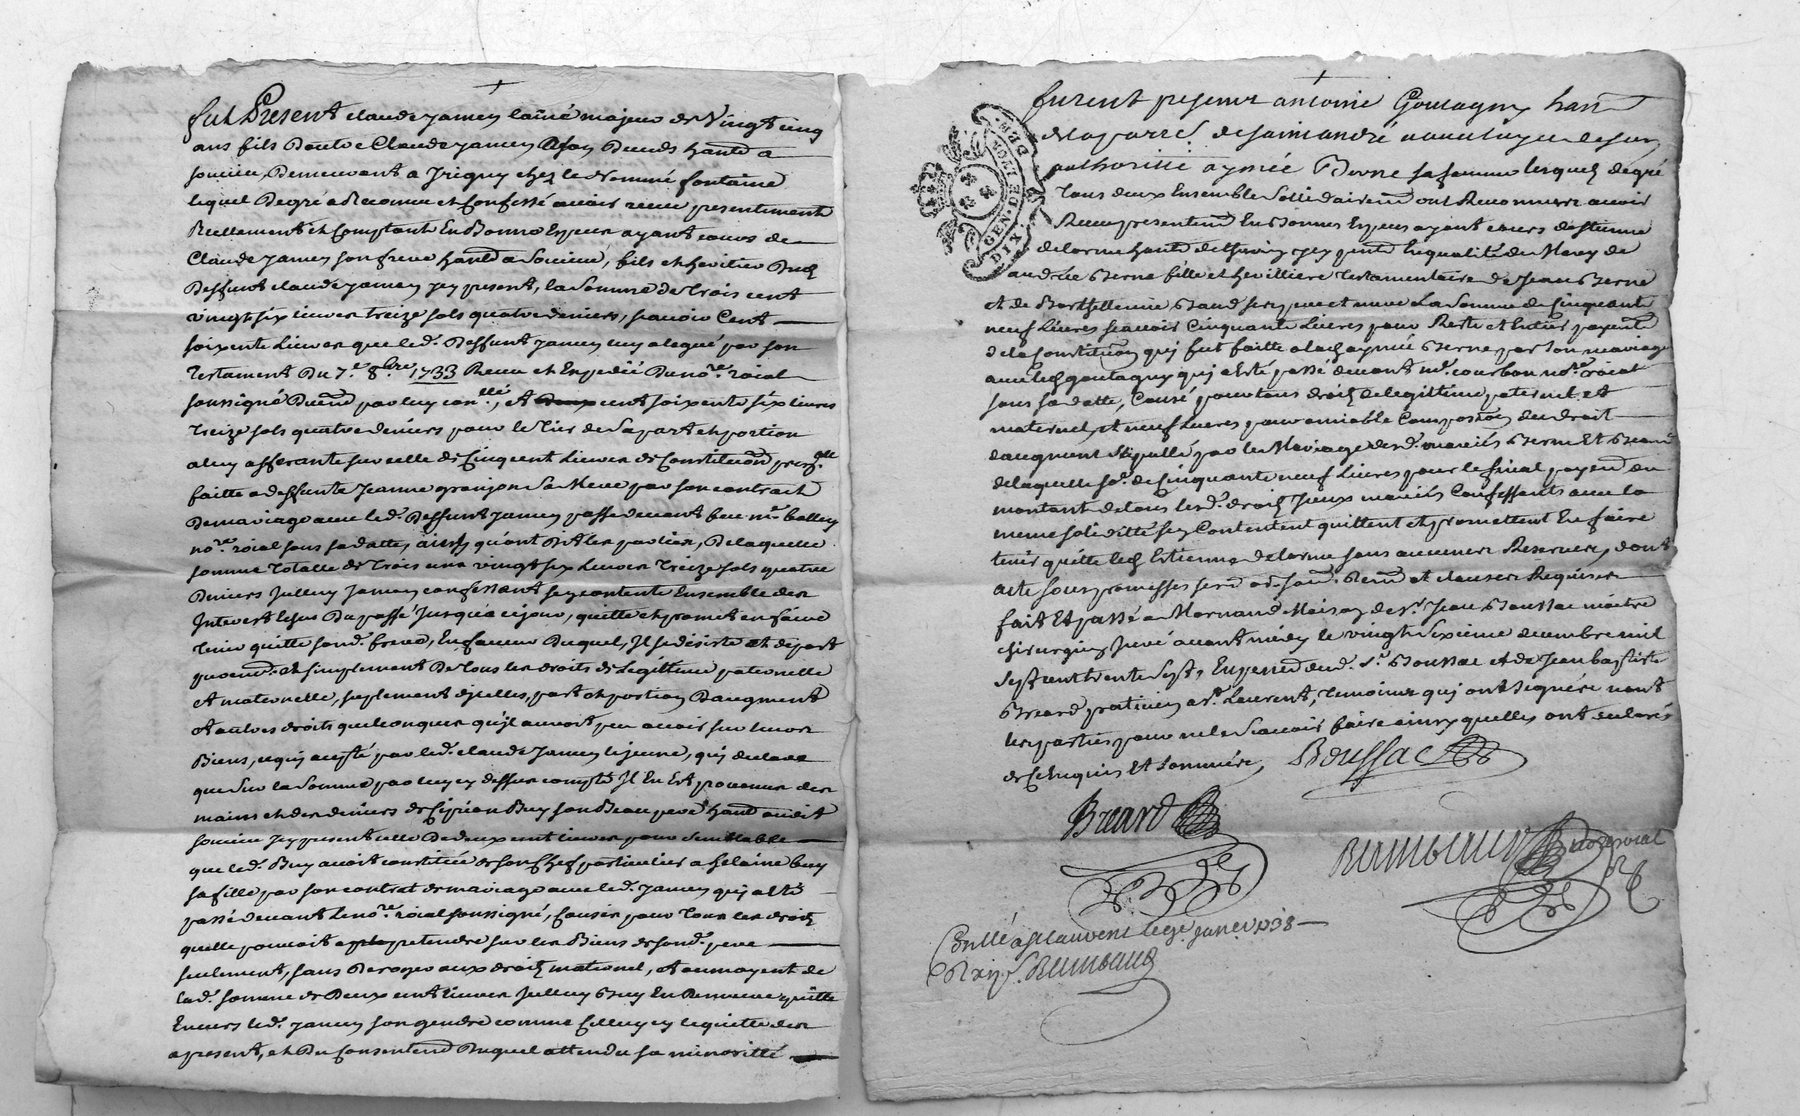 fut Present claude jamen laîné majeur de Vingt cinq
ans fils Deutve Claude jamen Deceds habt a
soucieu, Demeurant a Jrigny chez le Nommé fontaine
lequel Degré a Reconnu et Confessé avoir receu presentement
Reellement et Comptant En Bonnes Especes ayant cours de
Claude jamen son frere habt a Soucieu, fils et heritier Dud
Deffunt claude jamen jcy present, la Somme de Trois cent
vingt six livres treize sols quatre deniers, scavoir Cent
soixente Livres que led. Deffunt jamen luy a legué par son
Testament Du 7.e 8bre 1733 Receu et Expedié Du no.re roial
soussigné Duëmt par luy con.llé, et cent soixente six livres
treize sols quatre deniers pour le Tier de Sa part et portion
a luy afferante sur celle de Cinq cent Livres de Constitution
faitte a deffunte Jeanne granjon Sa Mere par son contract
De mariage avec led. Deffunt jamen passé devant feu m.e balley
no.re roial sous sa datte, ainsy qu'ont Dit les parties, De laquelle
somme Totalle de Trois cent vingt six Livres Treize sols quatre
Deniers Jcelluy Jamen confessant sey contente Ensemble des
Jnterest Jceus Du passé Jusqu'a ce jour, quitte et promet en faire
tenir quitte sond. frere, En faveur Duquel, Jl se désiste et départ
purem. et simplement De tous les droits de Legitime paternelle
et maternelle, suplement djcelles, part et portion D'augment
et autres droits quelconques qu'jl auroit peu avoir sur leurs
Biens, ce qui accepté par led. claude Jamen le jeune, qui declare
que Sur la Somme par luy cy dessus compté Jl En Est provenu des
mains et des deniers de Ciprien Buy son Beau pere habt audit
soucieu Jcy present celle De deux cent livres pour Semblable
que led. Buy avoit constituée de son Chef particulier a helaine buy
sa fille par son contrat de mariage avec led. Jamen qui a Eté
passé devant le no.re roial soussigné, Causée pour Tous les droits
qu'elle pouvoit pretendre sur les Biens de sond. pere
seulement, sans Deroger aux droits maternel, et au moyent de
lad. somme de Deux cent livres Jcelluy Buy En Demeure quitte
Envers led. Jamen son gendre comme Celluy cy le quitte des
a present, et Du Consentemt Duquel attendu sa minorité
furent presents antoine Goutagny habt
de la parr.e de saint andré avec luy de son
authorité aymée Berne sa femme lesquels de gré
Tous deux Ensemble Solidairemt ont Reconnu avoir
Receu presentemt En Bonnes Especes ayant cours d'Estienne
delorme habt de jcy present En qualité de Mary de
andrée Berne fille et heritiere Testamentaire de Jean Berne
et de Barthellemie ses pere et mere La Somme de Cinquante
neuf Livres scavoir Cinquante Livres pour Reste et Entier payemt
de la Constitution qui fut faitte a lad aymée Berne par son mariage
avec led goutagny qui a Eté passé devant m.e courbon no.re roial
sous sa datte, Causé pour tous droits de legitime paternel et
maternel, et neuf Livres pour amiable Composition du droit
daugment Stipullé par le Mariage desd. mariés Berne Et
de laquelle so.e de Cinquante neuf Livres pour le final payemt du
montant de tous lesd. droits Jceux mariés Confessants avec la
meme soliditté sey Contentent quittent et promettent En faire
tenir quitte led Estienne delorme sans aucunes Reserves, dont
acte sous promesses serm. obd. soum. Renon. et clauses Requises
fait Et passé a Mornand Maison de s.r Jean Boussac maitre
chirurgien Juré avant midy le vingt Sixieme decembre mil
Sept cent trente Sept, En presence dud. s.r Boussac et de Jean baptiste
Breard praticien a s.t Laurent, temoins qui ont signé et nont
les parties pour ne le Scavoir faire ainsy quelles ont declarés
de ce Enquis Et Sommées,
Boussac
Breard
no.re roial
GEN. DE LYON
DIX DEN.
Con.llé a St Laurent le 9e janvr 1738